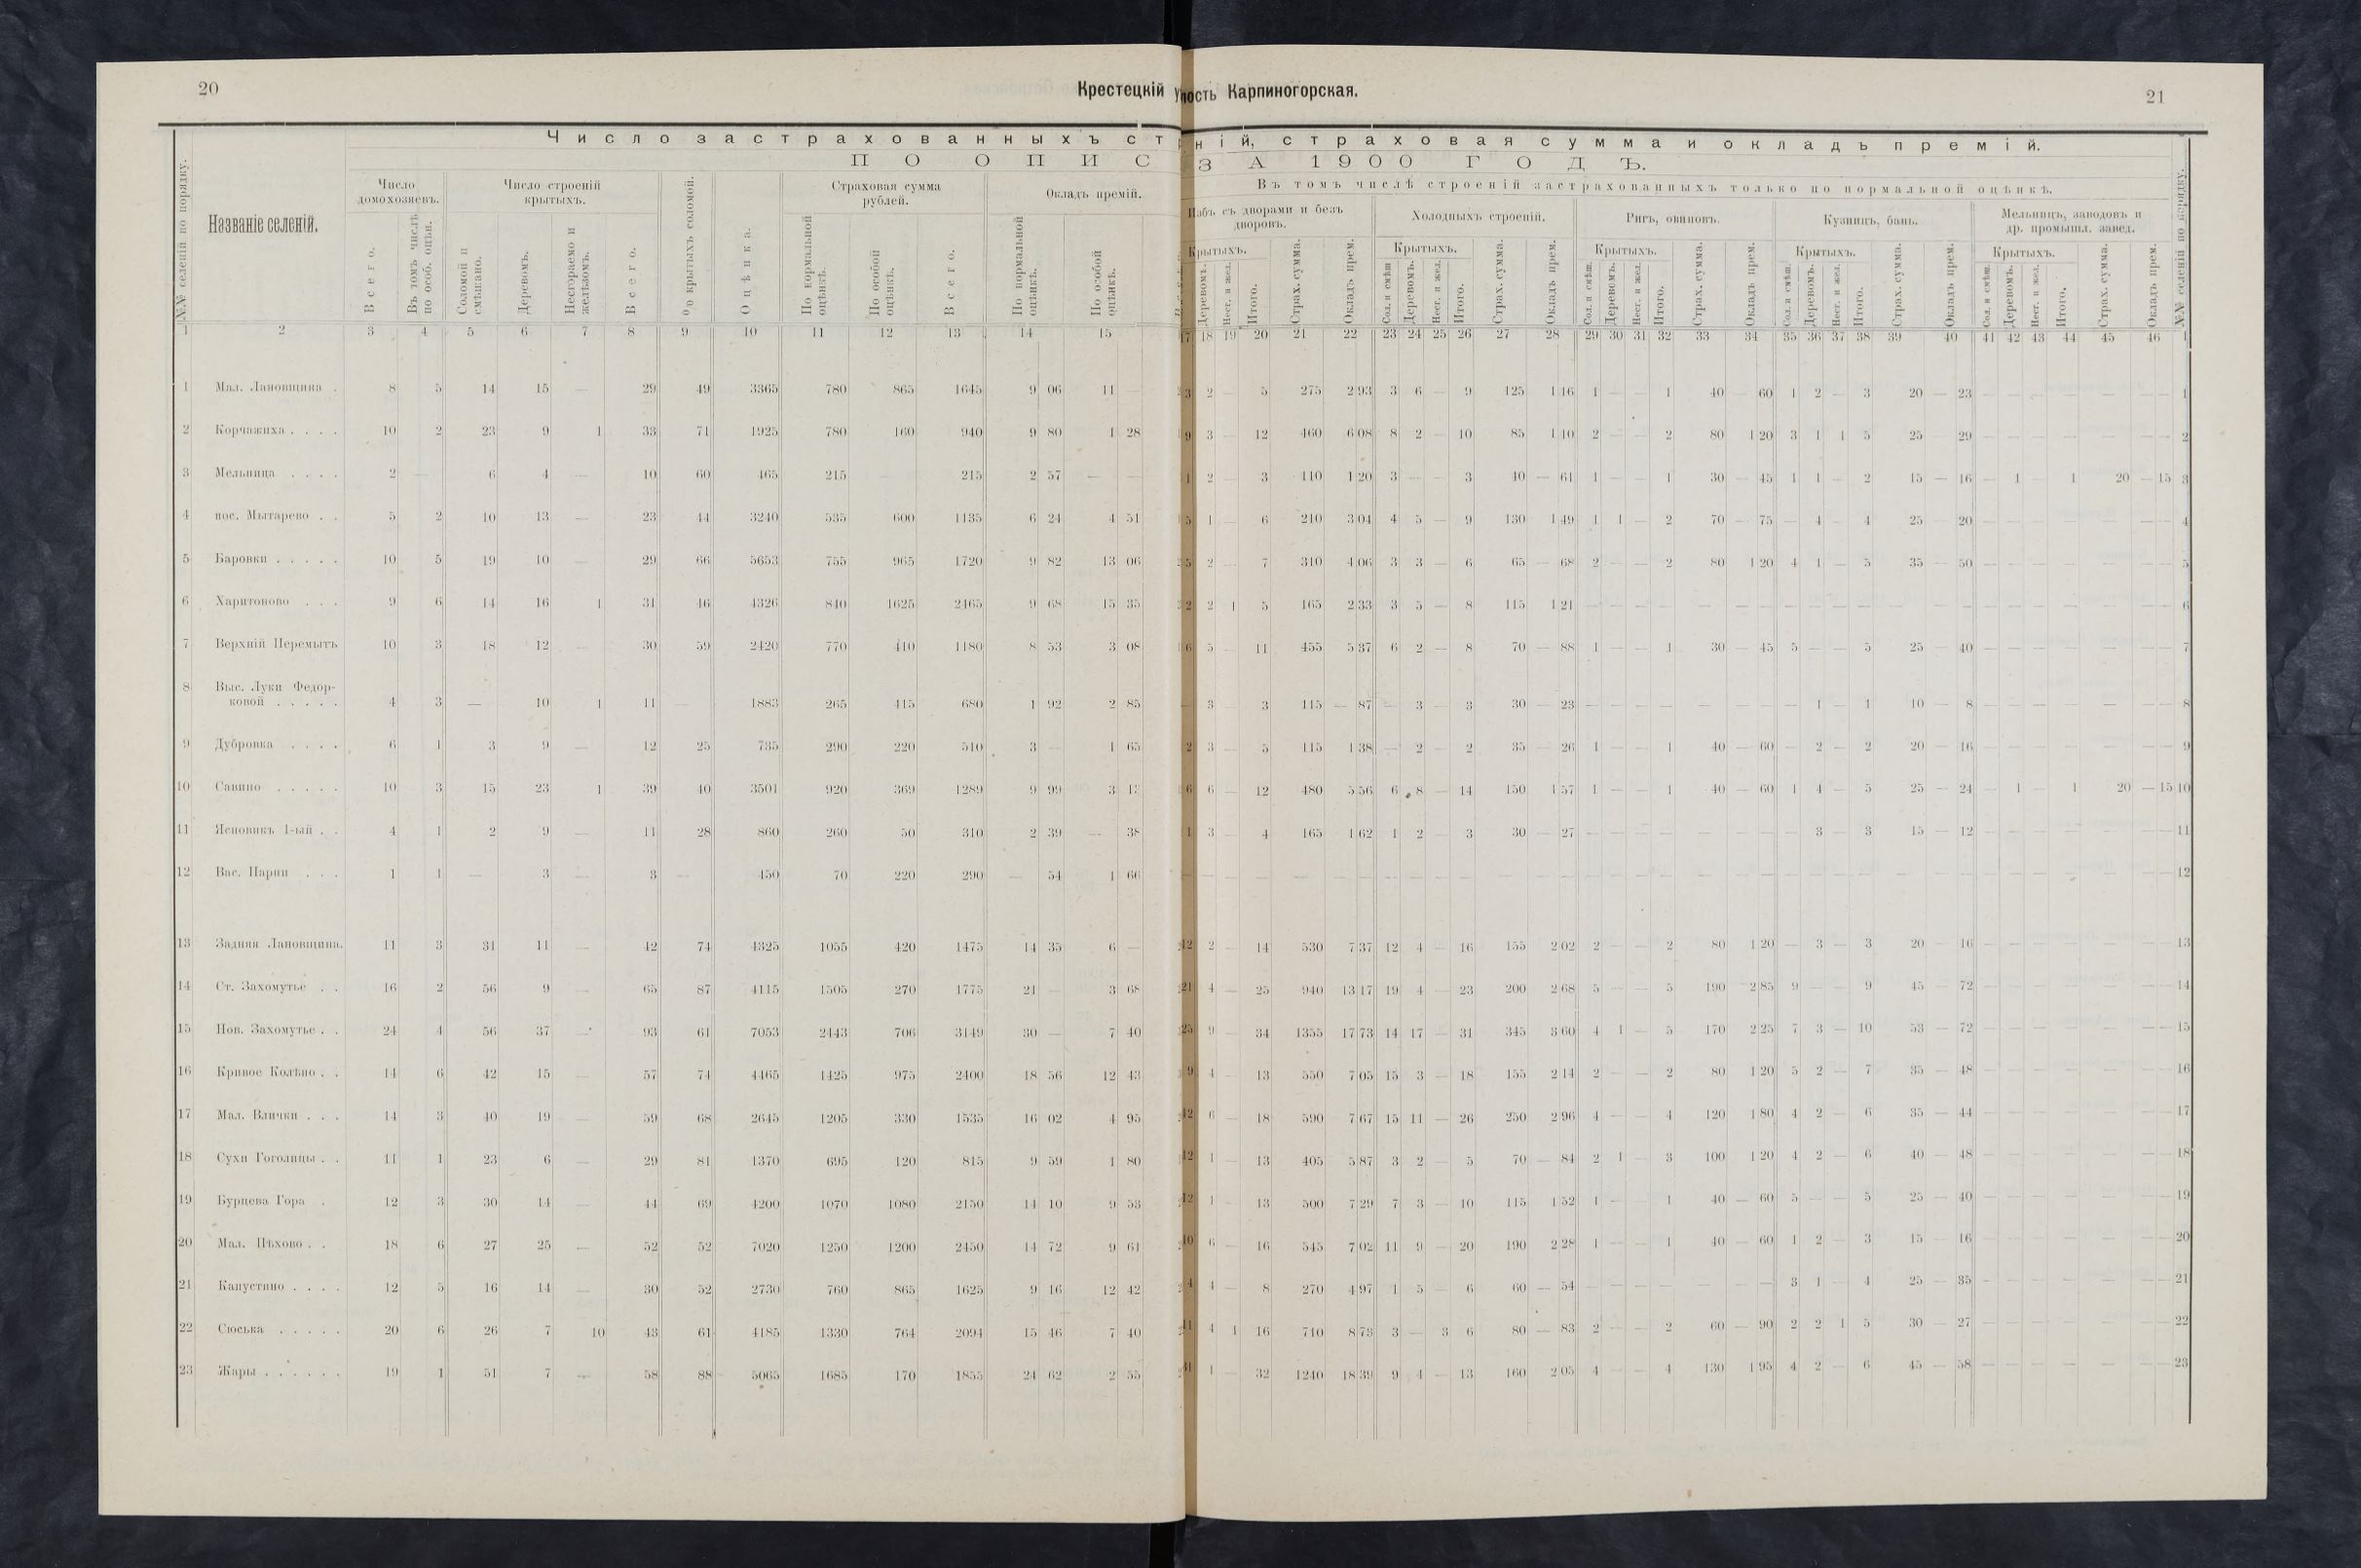 20
Крестецкій У
Число застрахованныхъ стр
ПО ОПИС
№№ селеній по порядку.
Названіе селеній.
Число домохозяевъ.
Всего.
Въ томъ числѣ по особ. оцѣн.
Число строеній крытыхъ.
Соломой и смѣшано.
Деревомъ.
Несгораемо и желѣзомъ.
Всего.
0/0 крытыхъ соломой.
Оцѣнка.
Страховая сумма рублей.
По нормальной оцѣнкѣ.
По особой оцѣнкѣ.
Всего.
Окладъ премій.
По нормальной оцѣнкѣ.
По особой оцѣнкѣ.
1 2 3 4 5 6 7 8 9 10 11 12 13 14 15
1 Мал. Лановщина . 8 5 14 15 — 29 49 3365 780 865 1645 9 06 11 —
2 Корчажиха . . . . 10 2 23 9 1 33 71 1925 780 160 940 9 80 1 28
3 Мельница . . . . 2 — 6 4 — 10 60 465 215 — 215 2 57 — —
4 пос. Мытарево . . 5 2 10 13 — 23 44 3240 535 600 1135 6 24 4 51
5 Баровки . . . . . 10 5 19 10 — 29 66 5653 755 965 1720 9 82 13 06
6 Харитоново . . . 9 6 14 16 1 31 46 4326 840 1625 2465 9 68 15 35
7 Верхній Перемытъ 10 3 18 12 — 30 59 2420 770 410 1180 8 53 3 08
8 Выс. Луки Федор-
ковой . . . . . 4 3 — 10 1 11 — 1883 265 415 680 1 92 2 85
9 Дубровка . . . . 6 1 3 9 — 12 25 735 290 220 510 3 — 1 65
10 Савино . . . . . 10 3 15 23 1 39 40 3501 920 369 1289 9 99 3
11 Ясновикъ 1-ый . . 4 1 2 9 — 11 28 860 260 50 310 2 39 — 38
12 Вас. Парни . . . 1 1 — 3 — 3 — 450 70 220 290 — 54 1 66
13 Задняя Лановщина. 11 3 31 11 — 42 74 4325 1055 420 1475 14 35 6 —
14 Ст. Захомутье . . 16 2 56 9 — 65 87 4115 1505 270 1775 21 — 3 68
15 Нов. Захомутье . . 24 4 56 37 — 93 61 7053 2443 706 3149 30 — 7 40
16 Кривое Колѣно . . 14 6 42 15 — 57 74 4465 1425 975 2400 18 56 12 43
17 Мал. Влички . . . 14 3 40 19 — 59 68 2645 1205 330 1535 16 02 4 95
18 Сухи Гоголицы . . 11 1 23 6 — 29 81 1370 695 120 815 9 59 1 80
19 Бурцева Гора . 12 3 30 14 — 44 69 4200 1070 1080 2150 14 10 9 53
20 Мал. Пѣхово . . 18 6 27 25 — 52 52 7020 1250 1200 2450 14 72 9 61
21 Капустино . . . . 12 5 16 14 — 30 52 2730 760 865 1625 9 16 12 42
22 Сюська . . . . . 20 6 26 7 10 43 61 4185 1330 764 2094 15 46 7 40
23 Жары . . . . . . 19 1 51 7 — 58 88 5065 1685 170 1855 24 62 2 55
ость Карпиногорская.
21
ній, страховая сумма и окладъ премій.
ЗА 1900 ГОДЪ.
Въ томъ числѣ строеній застрахованныхъ только по нормальной оцѣнкѣ.
Избъ съ дворами и безъ дворовъ.
Крытыхъ.
Деревомъ.
Несг. и жел.
Итого.
Страх. сумма.
Окладъ прем.
Холодныхъ строеній.
Крытыхъ.
Сол. и смѣш.
Деревомъ.
Несг. и жел.
Итого.
Страх. сумма.
Окладъ прем.
Ригъ, овиновъ.
Крытыхъ.
Сол. и смѣш.
Деревомъ.
Несг. и жел.
Итого.
Страх. сумма.
Окладъ прем.
Кузницъ, бань.
Крытыхъ.
Сол. и смѣш.
Деревомъ.
Несг. и жел.
Итого.
Страх. сумма.
Окладъ прем.
Мельницъ, заводовъ и др. промышл. завед.
Крытыхъ.
Сол. и смѣш.
Деревомъ.
Несг. и жел.
Итого.
Страх. сумма.
Окладъ прем.
№№ селеній по порядку.
18 19 20 21 22 23 24 25 26 27 28 29 30 31 32 33 34 35 36 37 38 39 40 41 42 43 44 45 46 1
3 2 — 5 275 2 93 3 6 — 9 125 1 16 1 — — 1 40 — 60 1 2 — 3 20 — 23 — — — — — — — 1
9 3 — 12 460 6 08 8 2 — 10 85 1 10 2 — — 2 80 1 20 3 1 1 5 25 — 29 — — — — — — — 2
1 2 — 3 110 1 20 3 — — 3 40 — 61 1 — — 1 30 — 45 1 1 — 2 15 — 16 — 1 — 1 20 — 15 3
5 1 — 6 210 3 04 4 5 — 9 130 1 49 1 1 — 2 70 — 75 — 4 — 4 25 — 20 — — — — — — — 4
5 2 — 7 310 4 06 3 3 — 6 65 — 68 2 — — 2 80 1 20 4 1 — 5 35 — 50 — — — — — — — 5
2 2 1 5 165 2 33 3 5 — 8 115 1 21 — — — — — — — — — — — — — — — — — — — — — 6
6 5 — 11 455 5 37 6 2 — 8 70 — 88 1 — — 1 30 — 45 5 — — 5 25 — 40 — — — — — — — 7
— 3 — 3 115 — 87 — 3 — 3 30 — 23 — — — — — — — — 1 — 1 10 — 8 — — — — — — — 8
2 3 — 5 115 1 38 — 2 — 2 35 — 26 1 — — 1 40 — 60 — 2 — 2 20 — 16 — — — — — — — 9
6 6 — 12 480 5 56 6 8 — 14 150 1 57 1 — — 1 40 — 60 1 4 — 5 25 — 24 — 1 — 1 20 — 15 10
1 3 — 4 165 1 62 1 2 — 3 30 — 27 — — — — — — — — 3 — 3 15 — 12 — — — — — — — 11
— — — — — — — — — — — — — — — — — — — — — — — — — — — — — — — 12
12 2 — 14 530 7 37 12 4 — 16 155 2 02 2 — — 2 80 1 20 — 3 — 3 20 — 16 — — — — — — — 13
21 4 — 25 940 13 17 19 4 — 23 200 2 68 5 — — 5 190 2 85 9 — — 9 45 — 72 — — — — — — — 14
25 9 — 34 1355 17 73 14 17 — 31 345 3 60 4 1 — 5 170 2 25 7 3 — 10 53 — 72 — — — — — — — 15
9 4 — 13 550 7 05 15 3 — 18 155 2 14 2 — — 2 80 1 20 5 2 — 7 35 — 48 — — — — — — — 16
12 6 — 18 590 7 67 15 11 — 26 250 2 96 4 — — 4 120 1 80 4 2 — 6 35 — 44 — — — — — — — 17
12 1 — 13 405 5 87 3 2 — 5 70 — 84 2 1 — 3 100 1 20 4 2 — 6 40 — 48 — — — — — — — 18
12 1 — 13 500 7 29 7 3 — 10 115 1 52 1 — — 1 40 — 60 5 — — 5 25 — 40 — — — — — — — 19
10 6 — 16 545 7 02 11 9 — 20 190 2 28 1 — — 1 40 — 60 1 2 — 3 15 — 16 — — — — — — — 20
4 4 — 8 270 4 97 1 5 — 6 60 — 54 — — — — — — — 3 1 — 4 25 — 35 — — — — — — — 21
11 4 1 16 710 8 73 3 — 3 6 80 — 83 2 — — 2 60 — 90 2 2 1 5 30 — 27 — — — — — — — 22
1 — 32 1240 18 39 9 4 — 13 160 2 05 4 — — 4 130 1 95 4 2 — 6 45 — 58 — — — — — — — 23